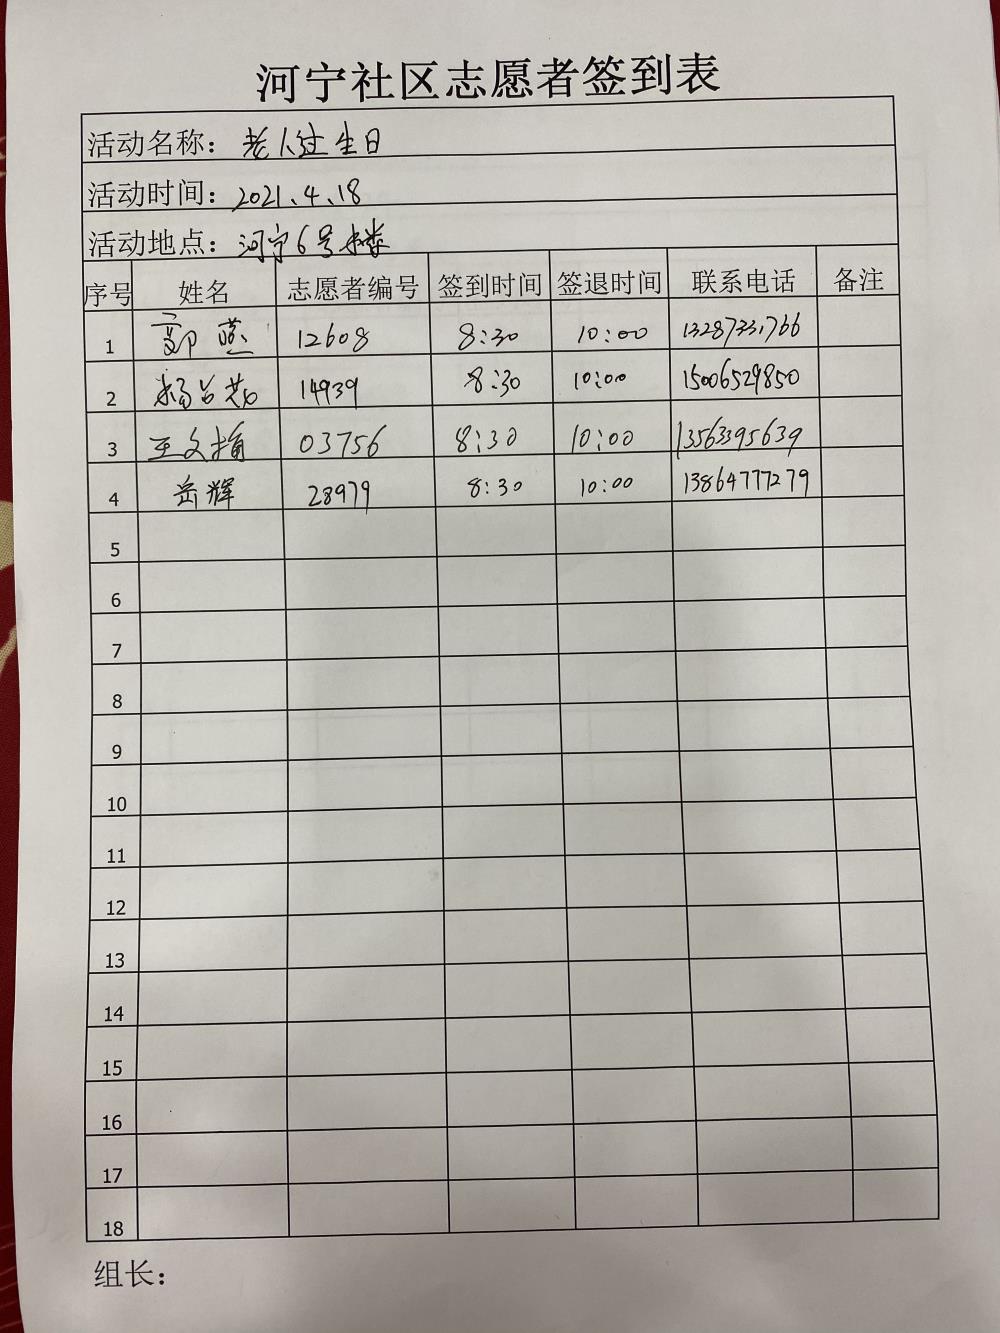 河宁社区志愿者签到表
活动名称：老人过生日
活动时间：2021、4、18
活动地点：河宁6号楼
序号 姓名 志愿者编号 签到时间 签退时间 联系电话 备注
1 郭燕 12608 8:30 10:00 13287331766
2 14939 8:30 10:00 15006529850
3 王文梅 03756 8:30 10:00 13563395639
4 岳辉 28979 8:30 10:00 13864777279
5
6
7
8
9
10
11
12
13
14
15
16
17
18
组长：